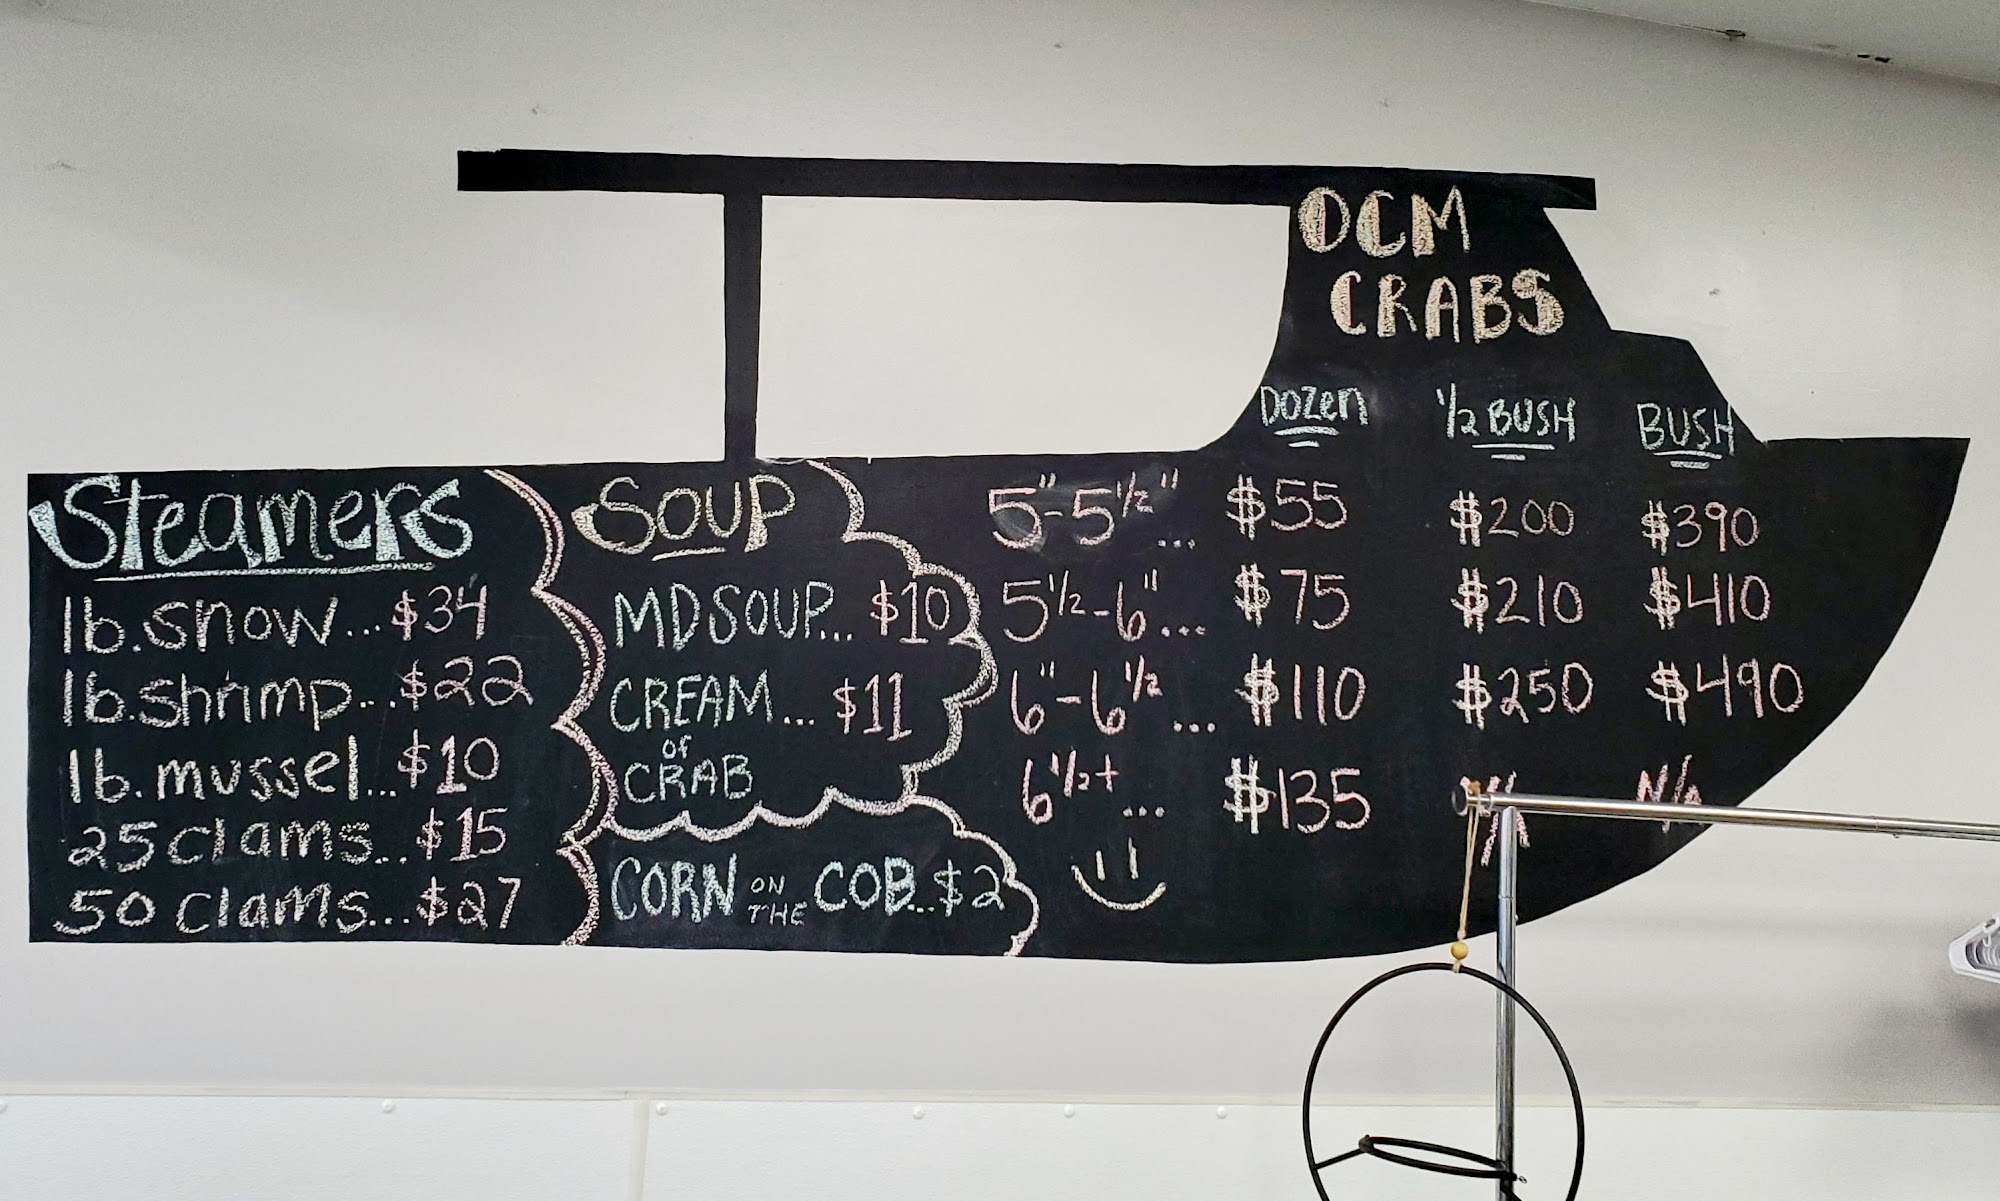 Steamers
1b. snow...$34
1b. shrimp...$22
1b. mussel...$10
25 clams...$15
50 clams...$27
SOUP
MD SOUP... $10
CREAM... $11
OF
CRAB
CORN ON THE COB...$2
OCM
CRABS
DOZEN 1/2 BUSH BUSH
5"-5 1/2"... $55 $200 $390
5 1/2-6"... $75 $210 $410
6"-6 1/2... $110 $250 $490
6 1/2+ ... $135 N/A